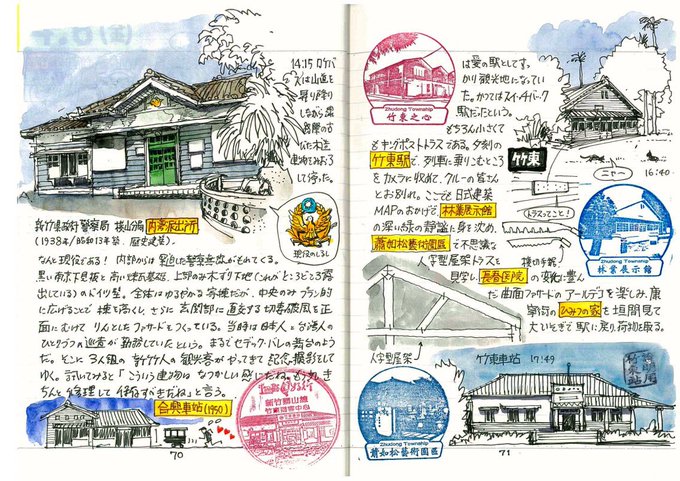 14:15 ロケバ
スは山道を
昇り降り
しながら
って停った。
新竹県政府警察局 横山分局 内湾派出所
(1938年/昭和13年築 歴史建築)
現役のしるし
なんと現役である! 内部からは
黒い南京下見板と赤い煉瓦基礎、上部のみ木ずり下地(これがところどころ露
出している)のドイツ壁。全体はゆるやかな寄棟だが、中央のみ
に広げることで棟を高くし、さらに玄関部に直交する切妻破風を正
面にむけて りんとしたファサードをつくっている。当時は日本人と台湾人の
ひとりづつの巡査が勤務していたという。まるでセデック・バレの舞台のよう
だ。そこに3人組の新竹人の観光客がやってきて記念撮影をして
ゆく。訊いてみると「こういう建物はなつかしい感じだね。もうすこしき
ちんと修理して保存すべきだね」と言う。
合興車站(1950)
新竹縣横山鄉
70
は愛の駅としてす。
かり観光地になってい
た。かつてはスイッチバック
駅だったという。
もちろん小さくて
もキングポストトラスである。夕刻の
竹東駅で、列車に乗りこむところ
をカメラに収めて、クルーの皆さん
とお別れ。ここでも日式建築
MAPのおかげで、林業展示館
の深い緑の静謐に身を沈め、
蕭如松藝術園區で不思議な
人字型屋架トラスを
見学し、長春医院の変化に豊ん
だ曲面ファサードのアールデコを楽しみ、
ひみつの家を垣間見て
大いそぎで駅に戻り、荷物を取る。
Zhudong Township
竹東之心
竹東
ニャ〜
16:40
トラスってこと!
Zhudong Township
林業展示館
人字型屋架
竹東車站 17:49
Zhudong Township
蕭如松藝術園區
竹東站
71